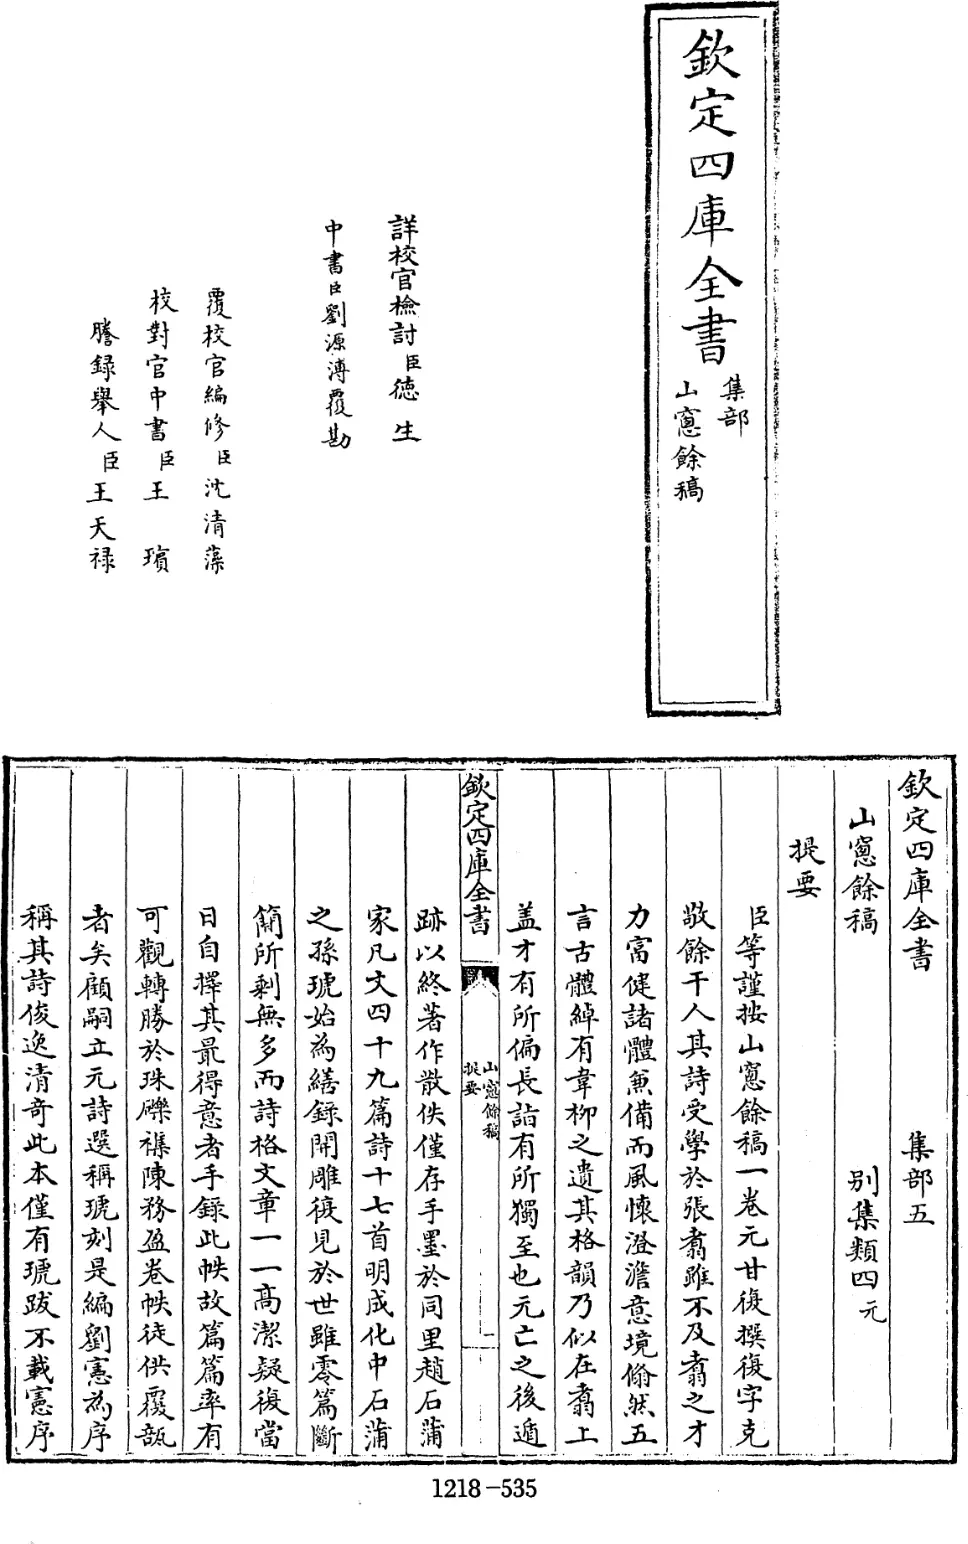 欽定四庫全書
集部
山窻餘稿
詳校官檢討臣德生
中書臣劉源溥覆勘
覆校官編修臣沈清藻
校對官中書臣王璸
謄録舉人臣王天禄
欽定四庫全書 集部五
山窻餘稿 别集類四元
提要
臣等謹按山窻餘稿一卷元甘復撰復字克
敬餘干人其詩受學於張翥雖不及翥之才
力富健諸體兼備而風懷澄澹意境翛然五
言古體綽有韋柳之遺其格韻乃似在翥上
盖才有所偏長詣有所獨至也元亡之後遁
欽定四庫全書
山窻餘稿
提要
一
跡以終著作散佚僅存手墨於同里趙石蒲
家凡文四十九篇詩十七首明成化中石蒲
之孫琥始為繕録開雕復見於世雖零篇斷
簡所剩無多而詩格文章一一高潔疑復當
日自擇其最得意者手録此帙故篇篇率有
可觀轉勝於珠礫襍陳務盈卷帙徒供覆瓿
者矣顧嗣立元詩選稱琥刻是編劉憲為序
稱其詩俊逸清竒此本僅有琥跋不載憲序
1218-535